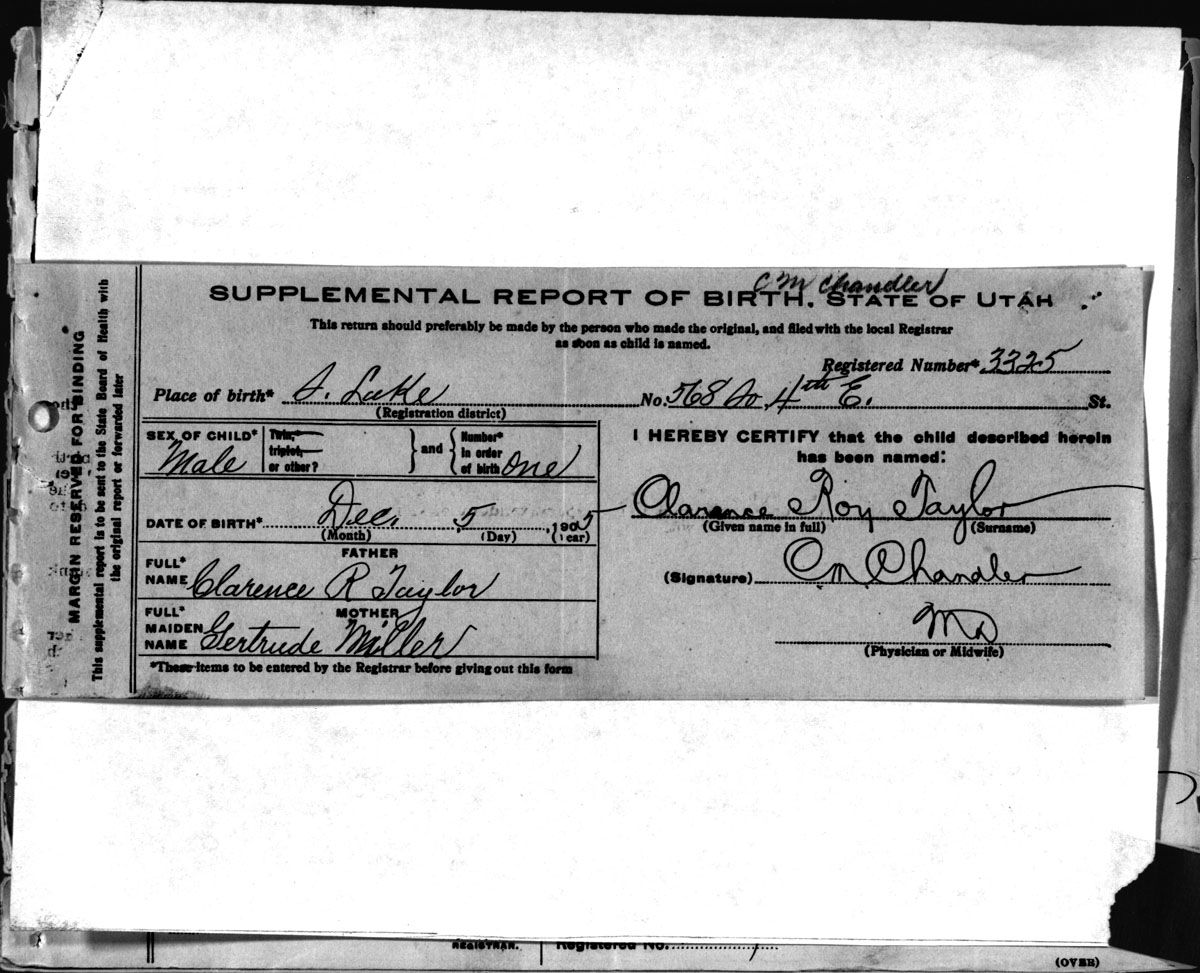 C M Chandler
SUPPLEMENTAL REPORT OF BIRTH, STATE OF UTAH
This return should preferably be made by the person who made the original, and filed with the local Registrar
as soon as child is named.
Registered Number* 3325
Place of birth* S. Lake No. 568 So 4th E. St.
(Registration district)
SEX OF CHILD* Male
Twin,
triplet,
or other?
and
Number*
in order
of birth One
DATE OF BIRTH* Dec. 5, 1905
(Month) (Day) (Year)
FATHER
FULL*
NAME Clarence R Taylor
MOTHER
FULL*
MAIDEN
NAME Gertrude Miller
*These items to be entered by the Registrar before giving out this form
I HEREBY CERTIFY that the child described herein
has been named:
Clarence Roy Taylor
(Given name in full) (Surname)
(Signature) C M Chandler
MD
(Physician or Midwife)
MARGIN RESERVED FOR BINDING
This supplemental report is to be sent to the State Board of Health with
the original report or forwarded later
REGISTRAR.
Registered No.
(OVER)